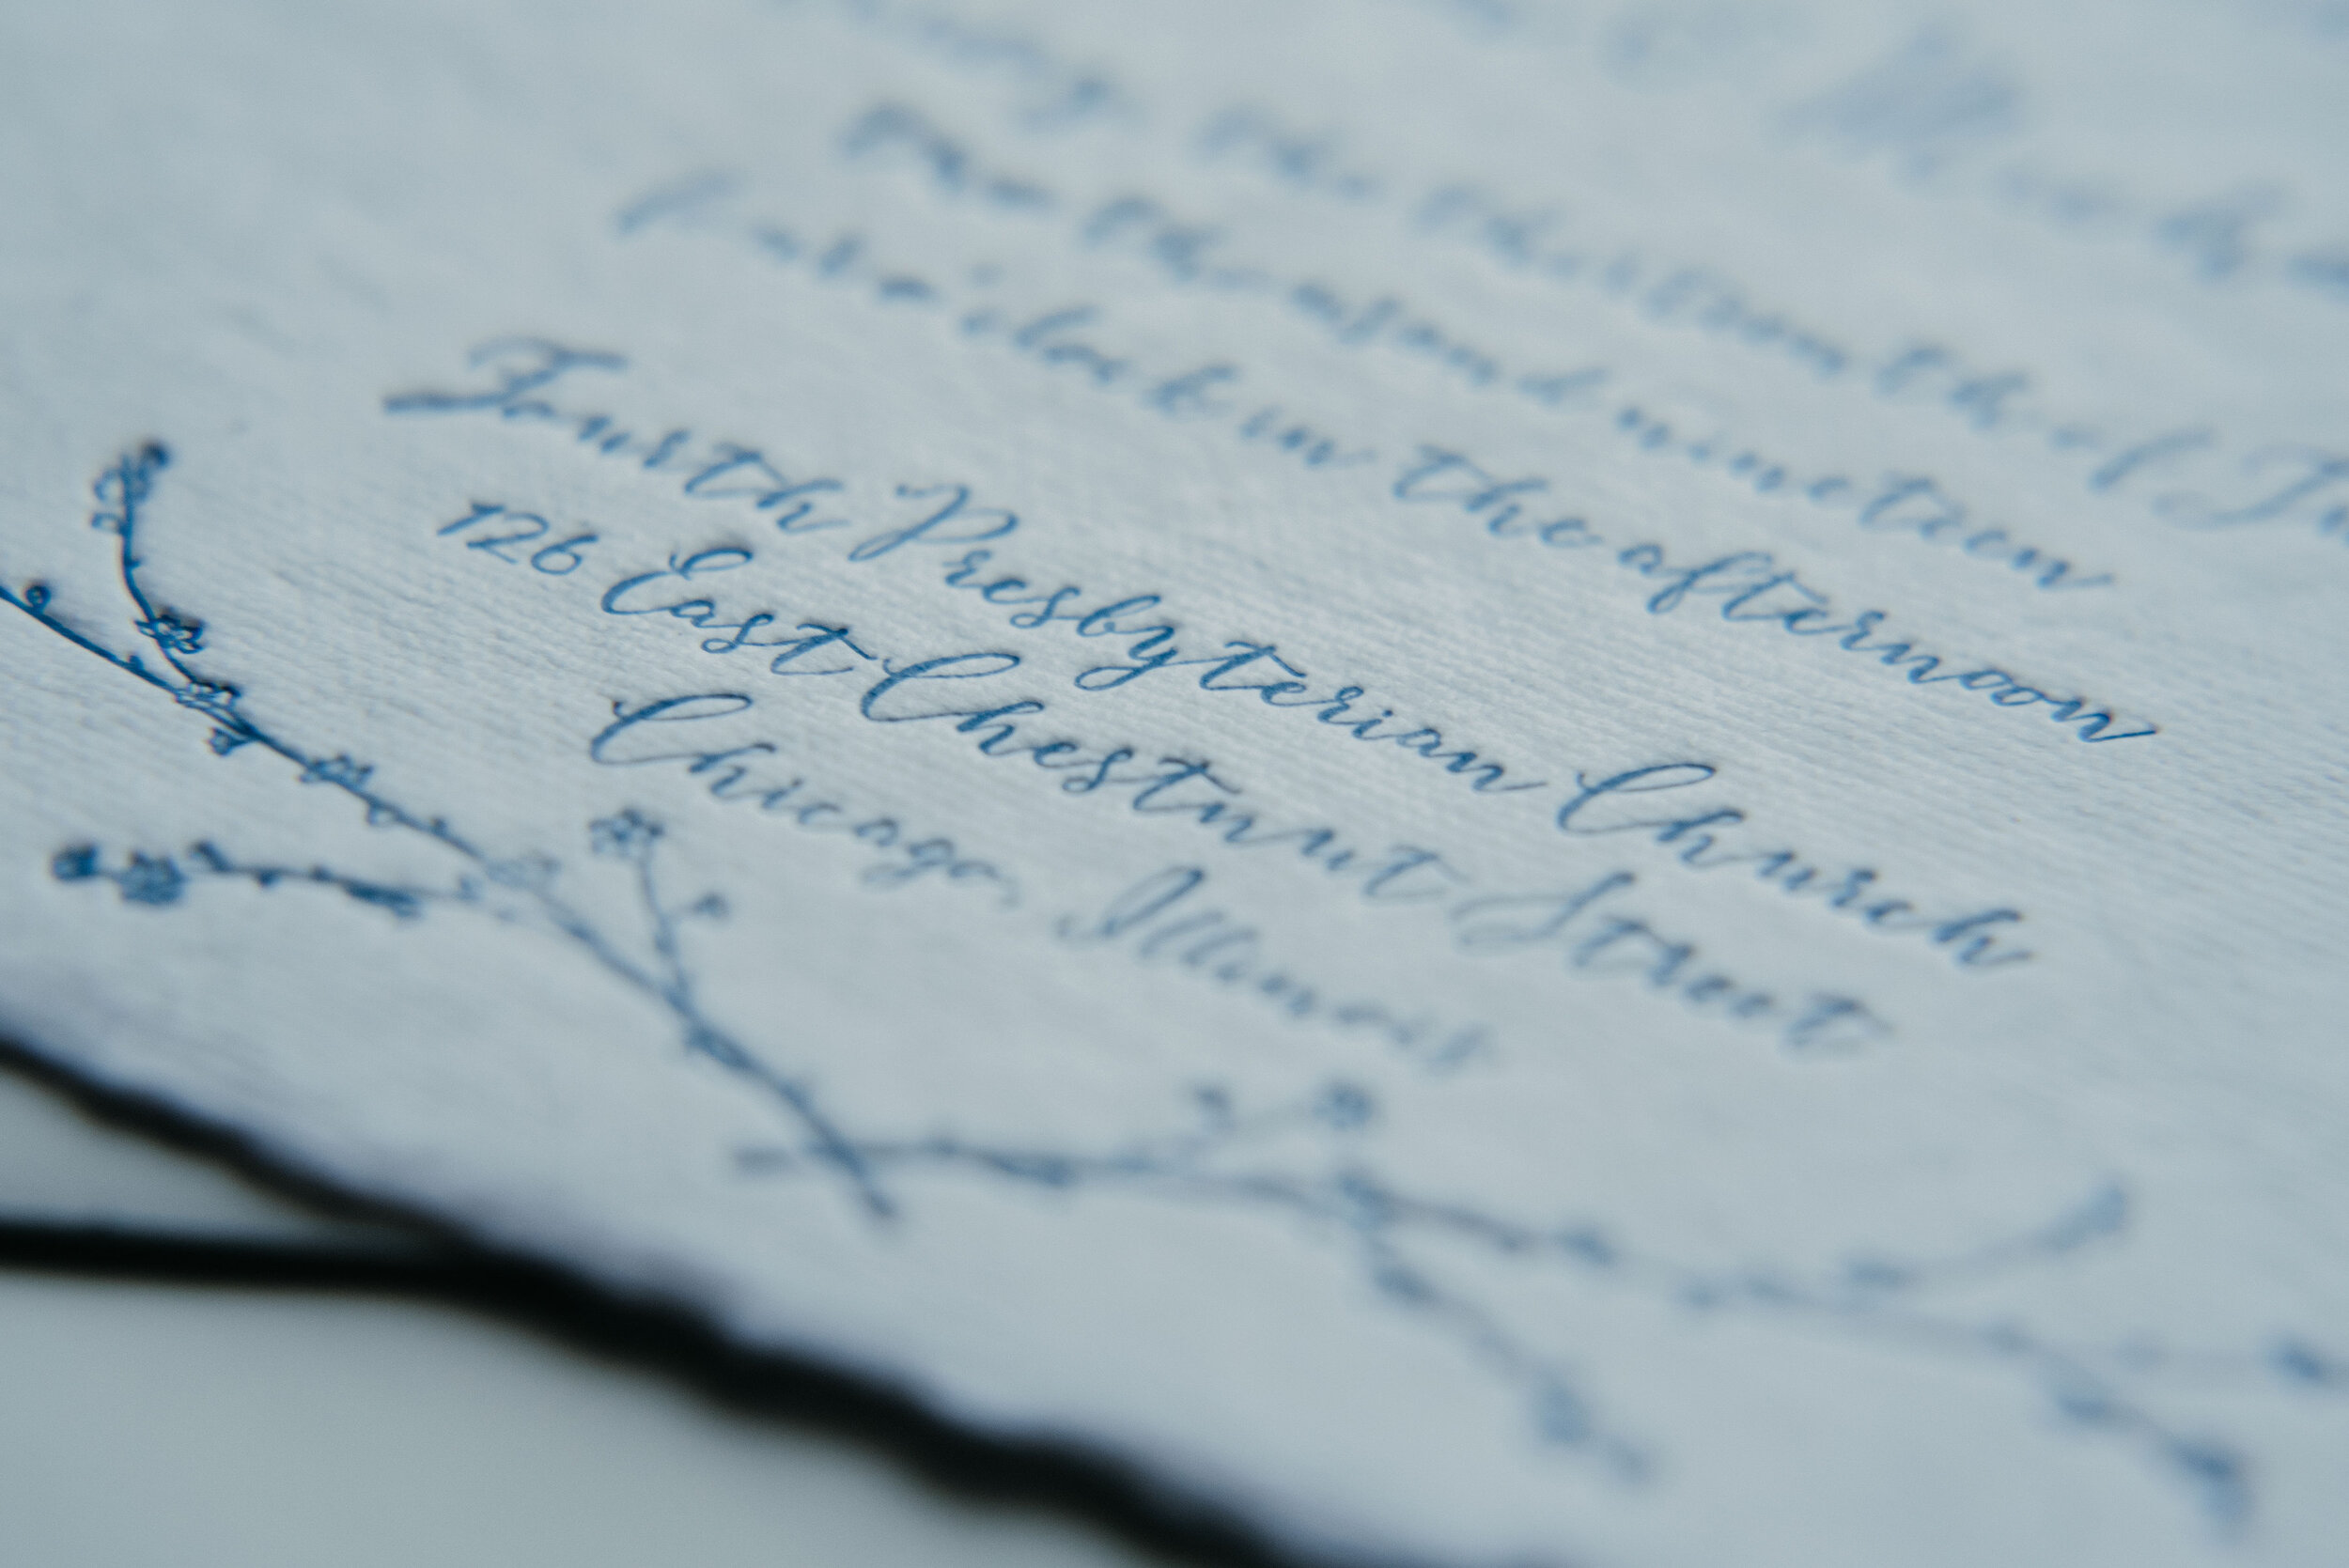 the thirteenth of
two thousand nineteen
four o'clock in the afternoon
Fourth Presbyterian Church
126 East Chestnut Street
Chicago, Illinois